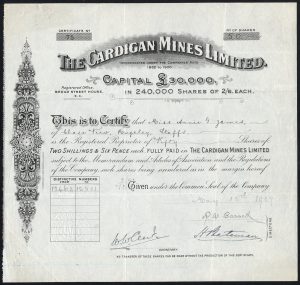 CERTIFICATE No
No OF SHARES
THE CARDIGAN MINES LIMITED.
INCORPORATED UNDER THE COMPANIES ACTS
1862 TO 1900.
Registered Office,
BROAD STREET HOUSE,
E.C.
CAPITAL £30,000.
IN 240,000 SHARES OF 2/6 EACH.
This is to Certify that Miss Annie G. James
of View, Rugeley, Staffs
is the Registered Proprietor of Fifty Shares of
TWO SHILLINGS & SIX PENCE each FULLY PAID in THE CARDIGAN MINES LIMITED
subject to the Memorandum and Articles of Association and the Regulations
of the Company, such shares being numbered as in the margin hereof
DISTINCTIVE NUMBERS
Given under the Common Seal of the Company
May
DIRECTORS
SECRETARY
NO TRANSFER OF THESE SHARES CAN BE MADE WITHOUT THE PRODUCTION OF THIS CERTIFICATE.